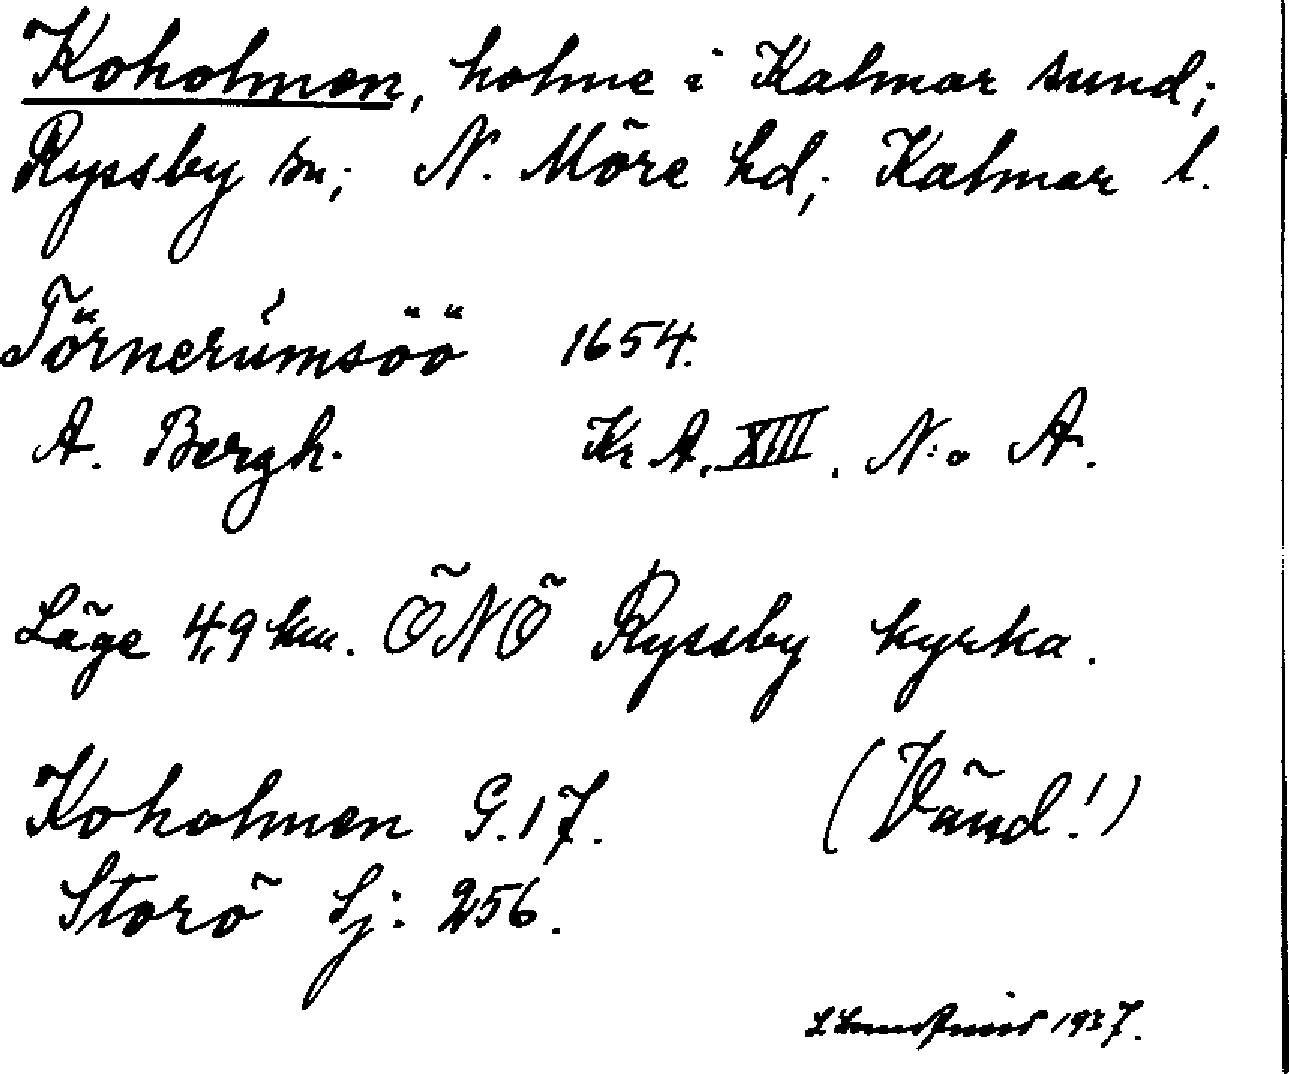 Koholmen, holme i Kalmar sund;
Ryssby sn; N. Möre hd; Kalmar l.
Törnerúmsöö 1654.
A. Bergh. Kr A. XIII. N:o A.
Läge 4,9 km. ÖNÖ Ryssby kyrka.
Koholmen G.17. (Vänd!)
Storö Sj: 256.
1937.